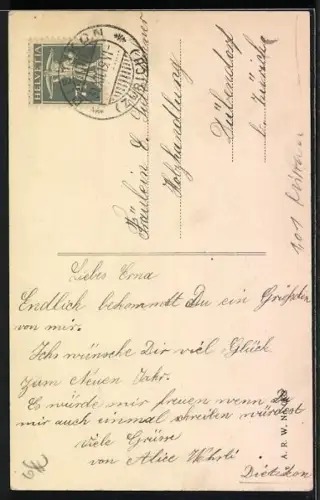 HELVETIA
(ZÜRICH)
Fräulein E.
Holzhandlung
Dübendorf
b. Zürich
101
Liebes Erna
Endlich bekommdt Du ein Grüssden
von mir.
Ich wünsche Dir viel Glück
zum Neuen Jahr.
Es würde mir freuen wenn Du
mir auch einmal schreiben würdest
Viele Grüsse
von Alice Wehrli
Dietikon
A. R. W. N.